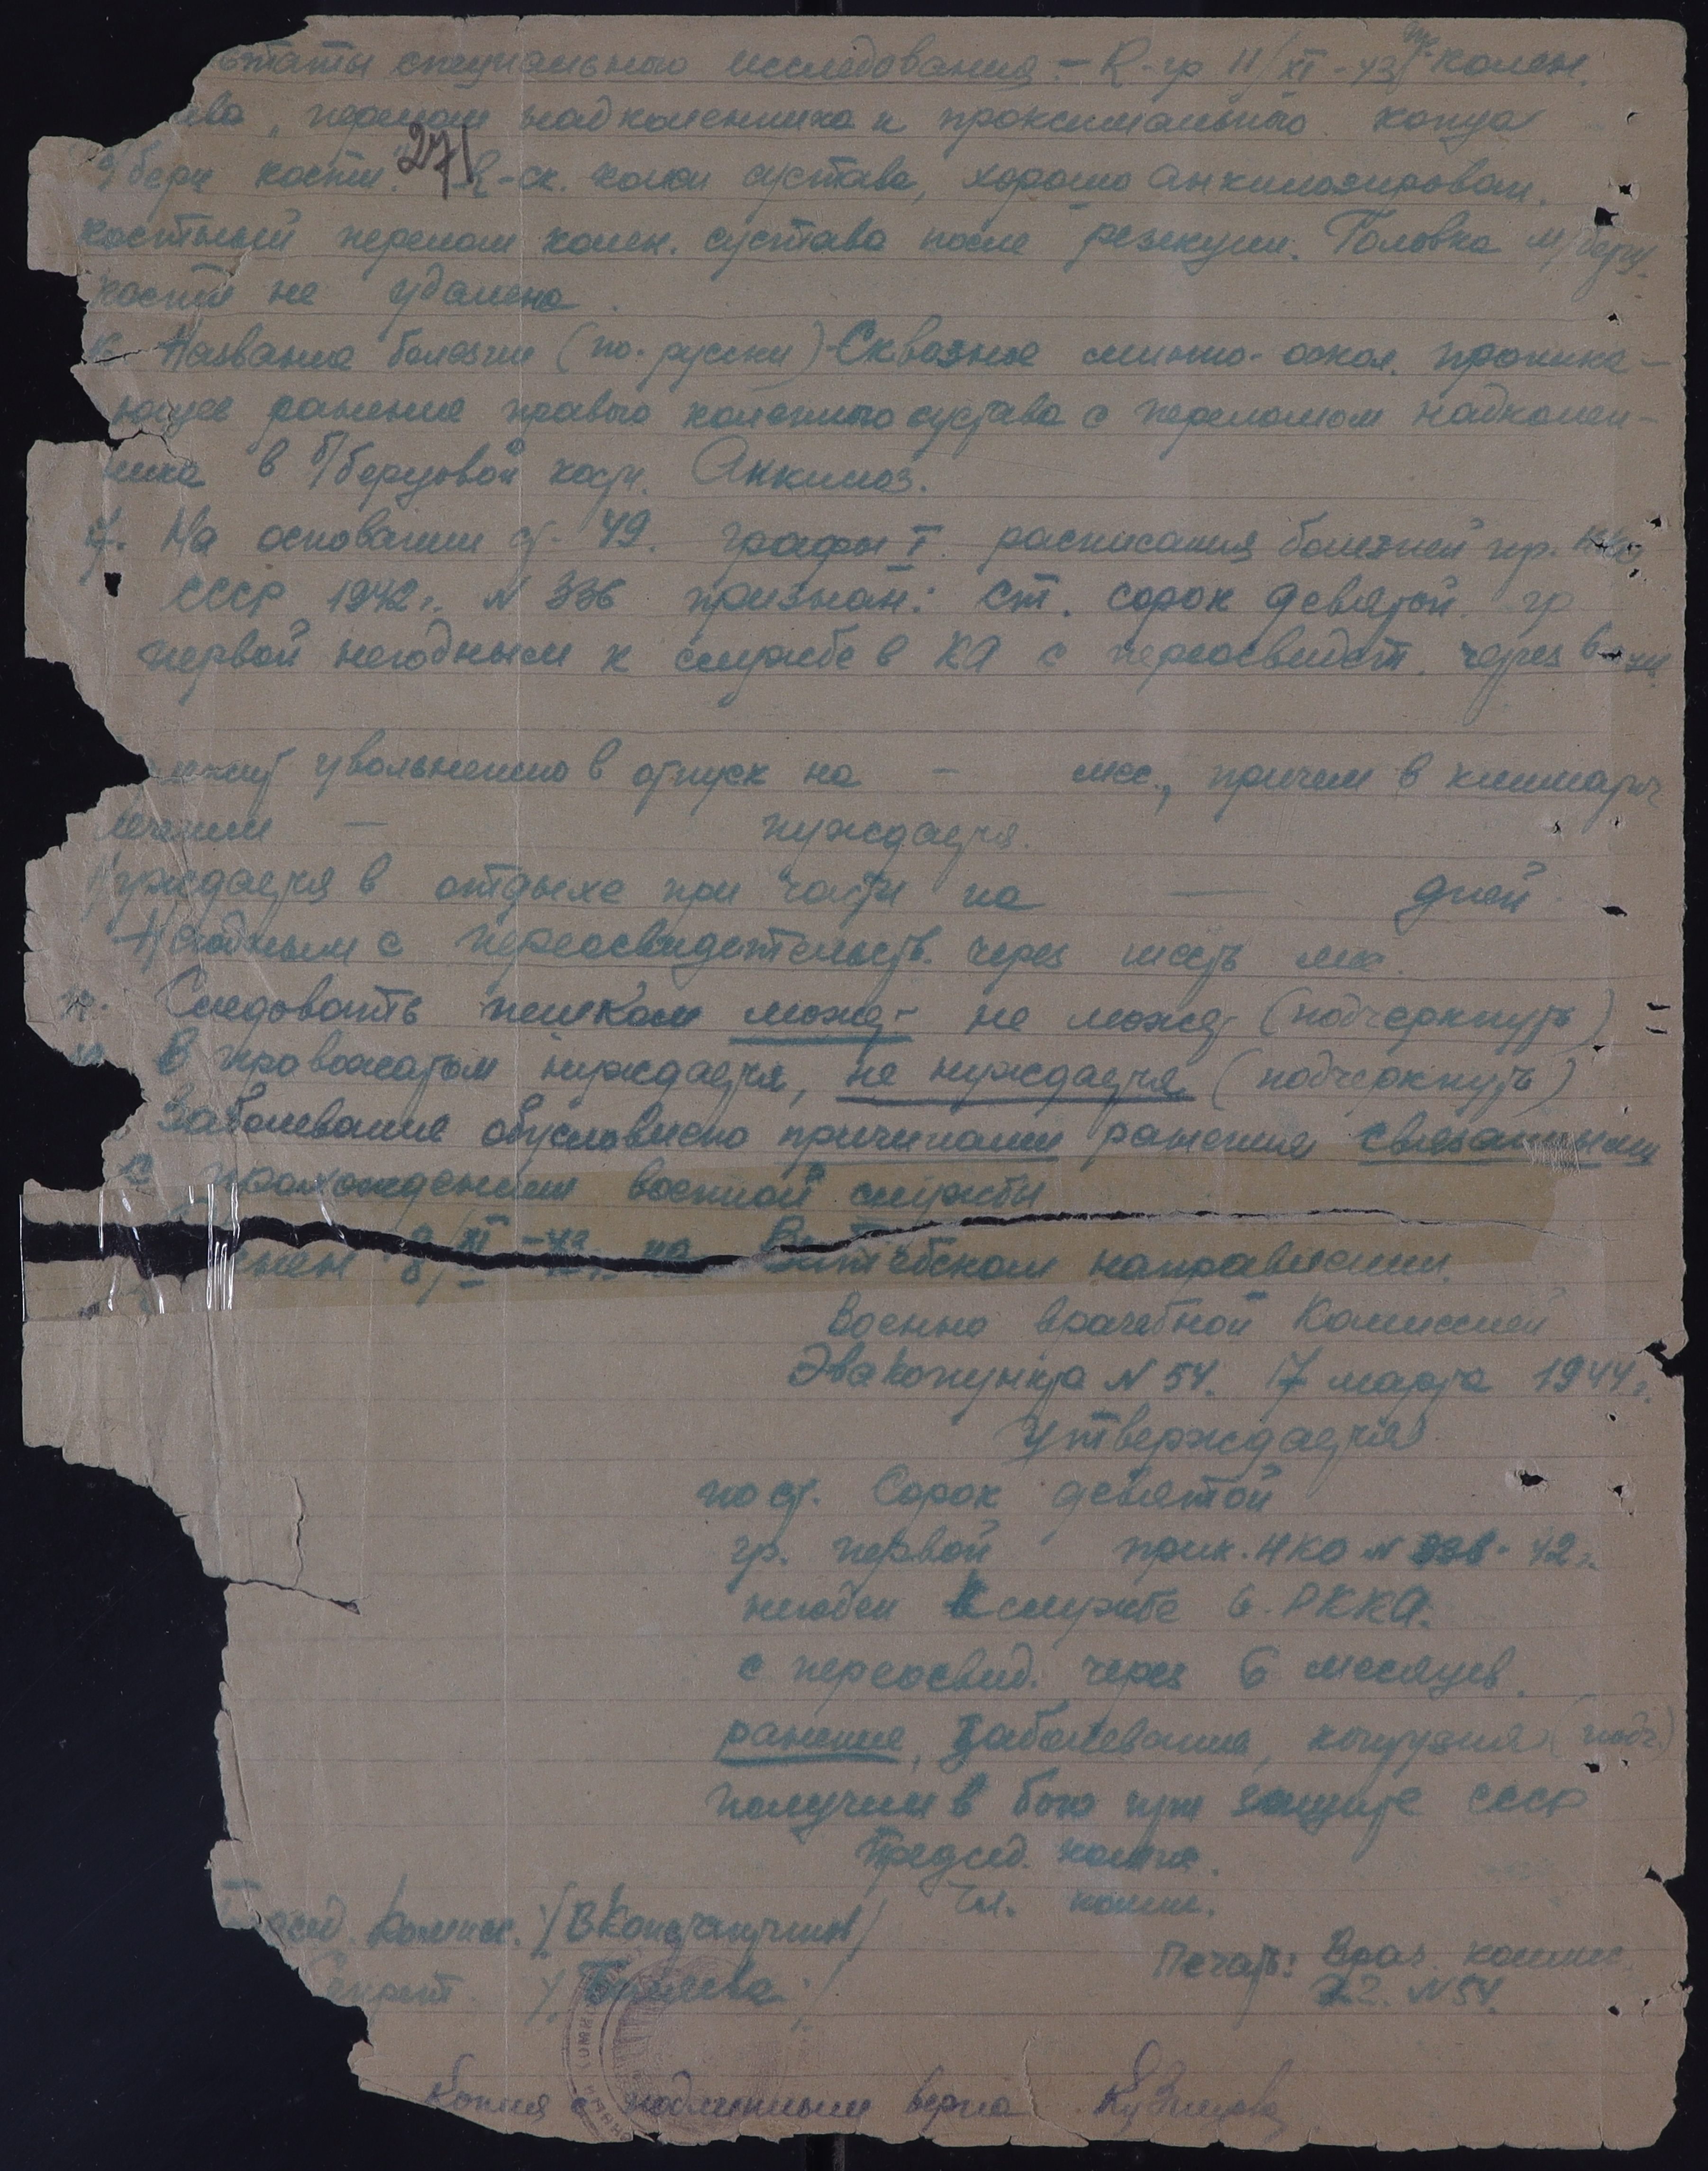 ьтаты специального исследования. – R-гр 11/XI-43 г. колен.
ава „перелом надколенника и проксимального конца
б/берц кости." R-ск. колен сустава, хорошо анкилозирован.
271
костный перелом колен. сустава после резекции. Головка м/берц.
кости не удалена.
Название болезни (по-русски) – Сквозное минно-оскол. проника-
ющее ранение правого коленного сустава с переломом надколен-
ника в б/берцовой кости. Анкилоз.
7. На основании ст. 49. графы I. расписания болезней пр. НКО
СССР 1942 г. N 336 признан: Ст. сорок девятой. гр
первой негодным к службе в КА с переосвидет. через 6
увольнению в отпуск на – мес., причем в
лечении – нуждается.
Нуждается в отдыхе при части на — дней.
Негодным с переосвидетельств. через шесть мес.
Следовать пешком может не может (подчеркнуть)
В провожатом нуждается, не нуждается (подчеркнуть)
Заболевание обусловлено причинами ранения связанными
прохождением военной службы
нен 8/XI-43 г. на Витебском направлении.
Военно врачебной Комиссией
Эвакопункта N 54. 17 марта 1944 г.
Утверждается
по ст. Сорок девятой
гр. первой прик. НКО N 336-42 г.
негоден к службе в РККА.
с переосвид. через 6 месяцев.
ранение, заболевание, контузия (подч.)
получил в бою при защите СССР
Председ. комис.
Чл. комис.
Председ. Комисс. /В Константинов/
Печать: Врач. комис.
Секрет.
N 54.
Копия с подлинным верна Кузнецова